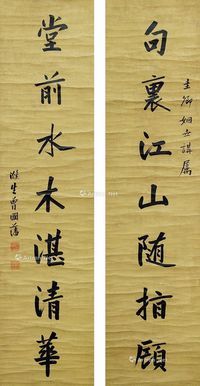 句裏江山随指顧
圭卿姻世講屬
堂前水木湛清華
滌生曾國藩